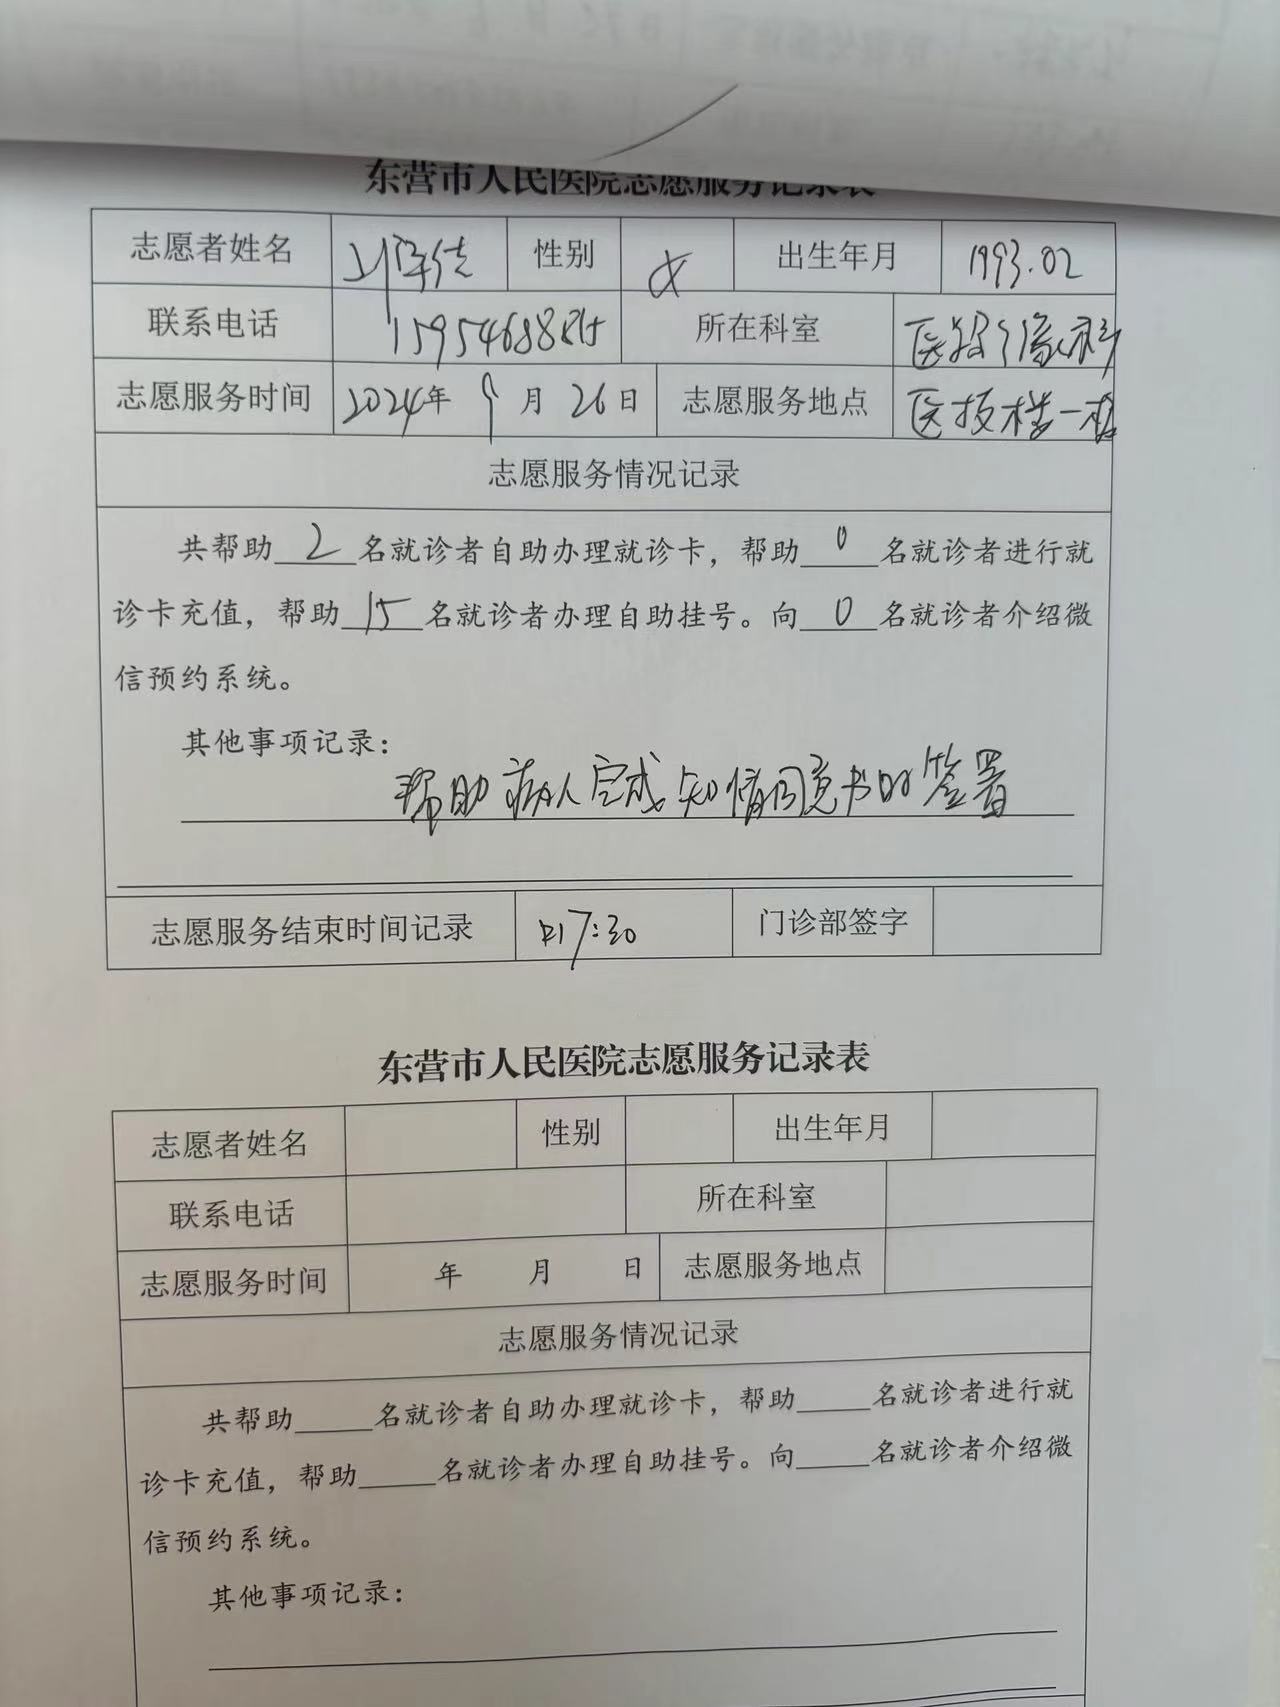 东营市人民医院志愿服务记录表
志愿者姓名 性别 女 出生年月 1993.02
联系电话 所在科室 医学影像科
志愿服务时间 2024年 9 月 26 日 志愿服务地点 医技楼一楼
志愿服务情况记录
共帮助 2 名就诊者自助办理就诊卡，帮助 0 名就诊者进行就
诊卡充值，帮助 15 名就诊者办理自助挂号。向 0 名就诊者介绍微
信预约系统。
其他事项记录：
帮助病人完成知情同意书的签署
志愿服务结束时间记录 17:30 门诊部签字
东营市人民医院志愿服务记录表
志愿者姓名 性别 出生年月
联系电话 所在科室
志愿服务时间 年 月 日 志愿服务地点
志愿服务情况记录
共帮助_____名就诊者自助办理就诊卡，帮助_____名就诊者进行就
诊卡充值，帮助_____名就诊者办理自助挂号。向_____名就诊者介绍微
信预约系统。
其他事项记录：